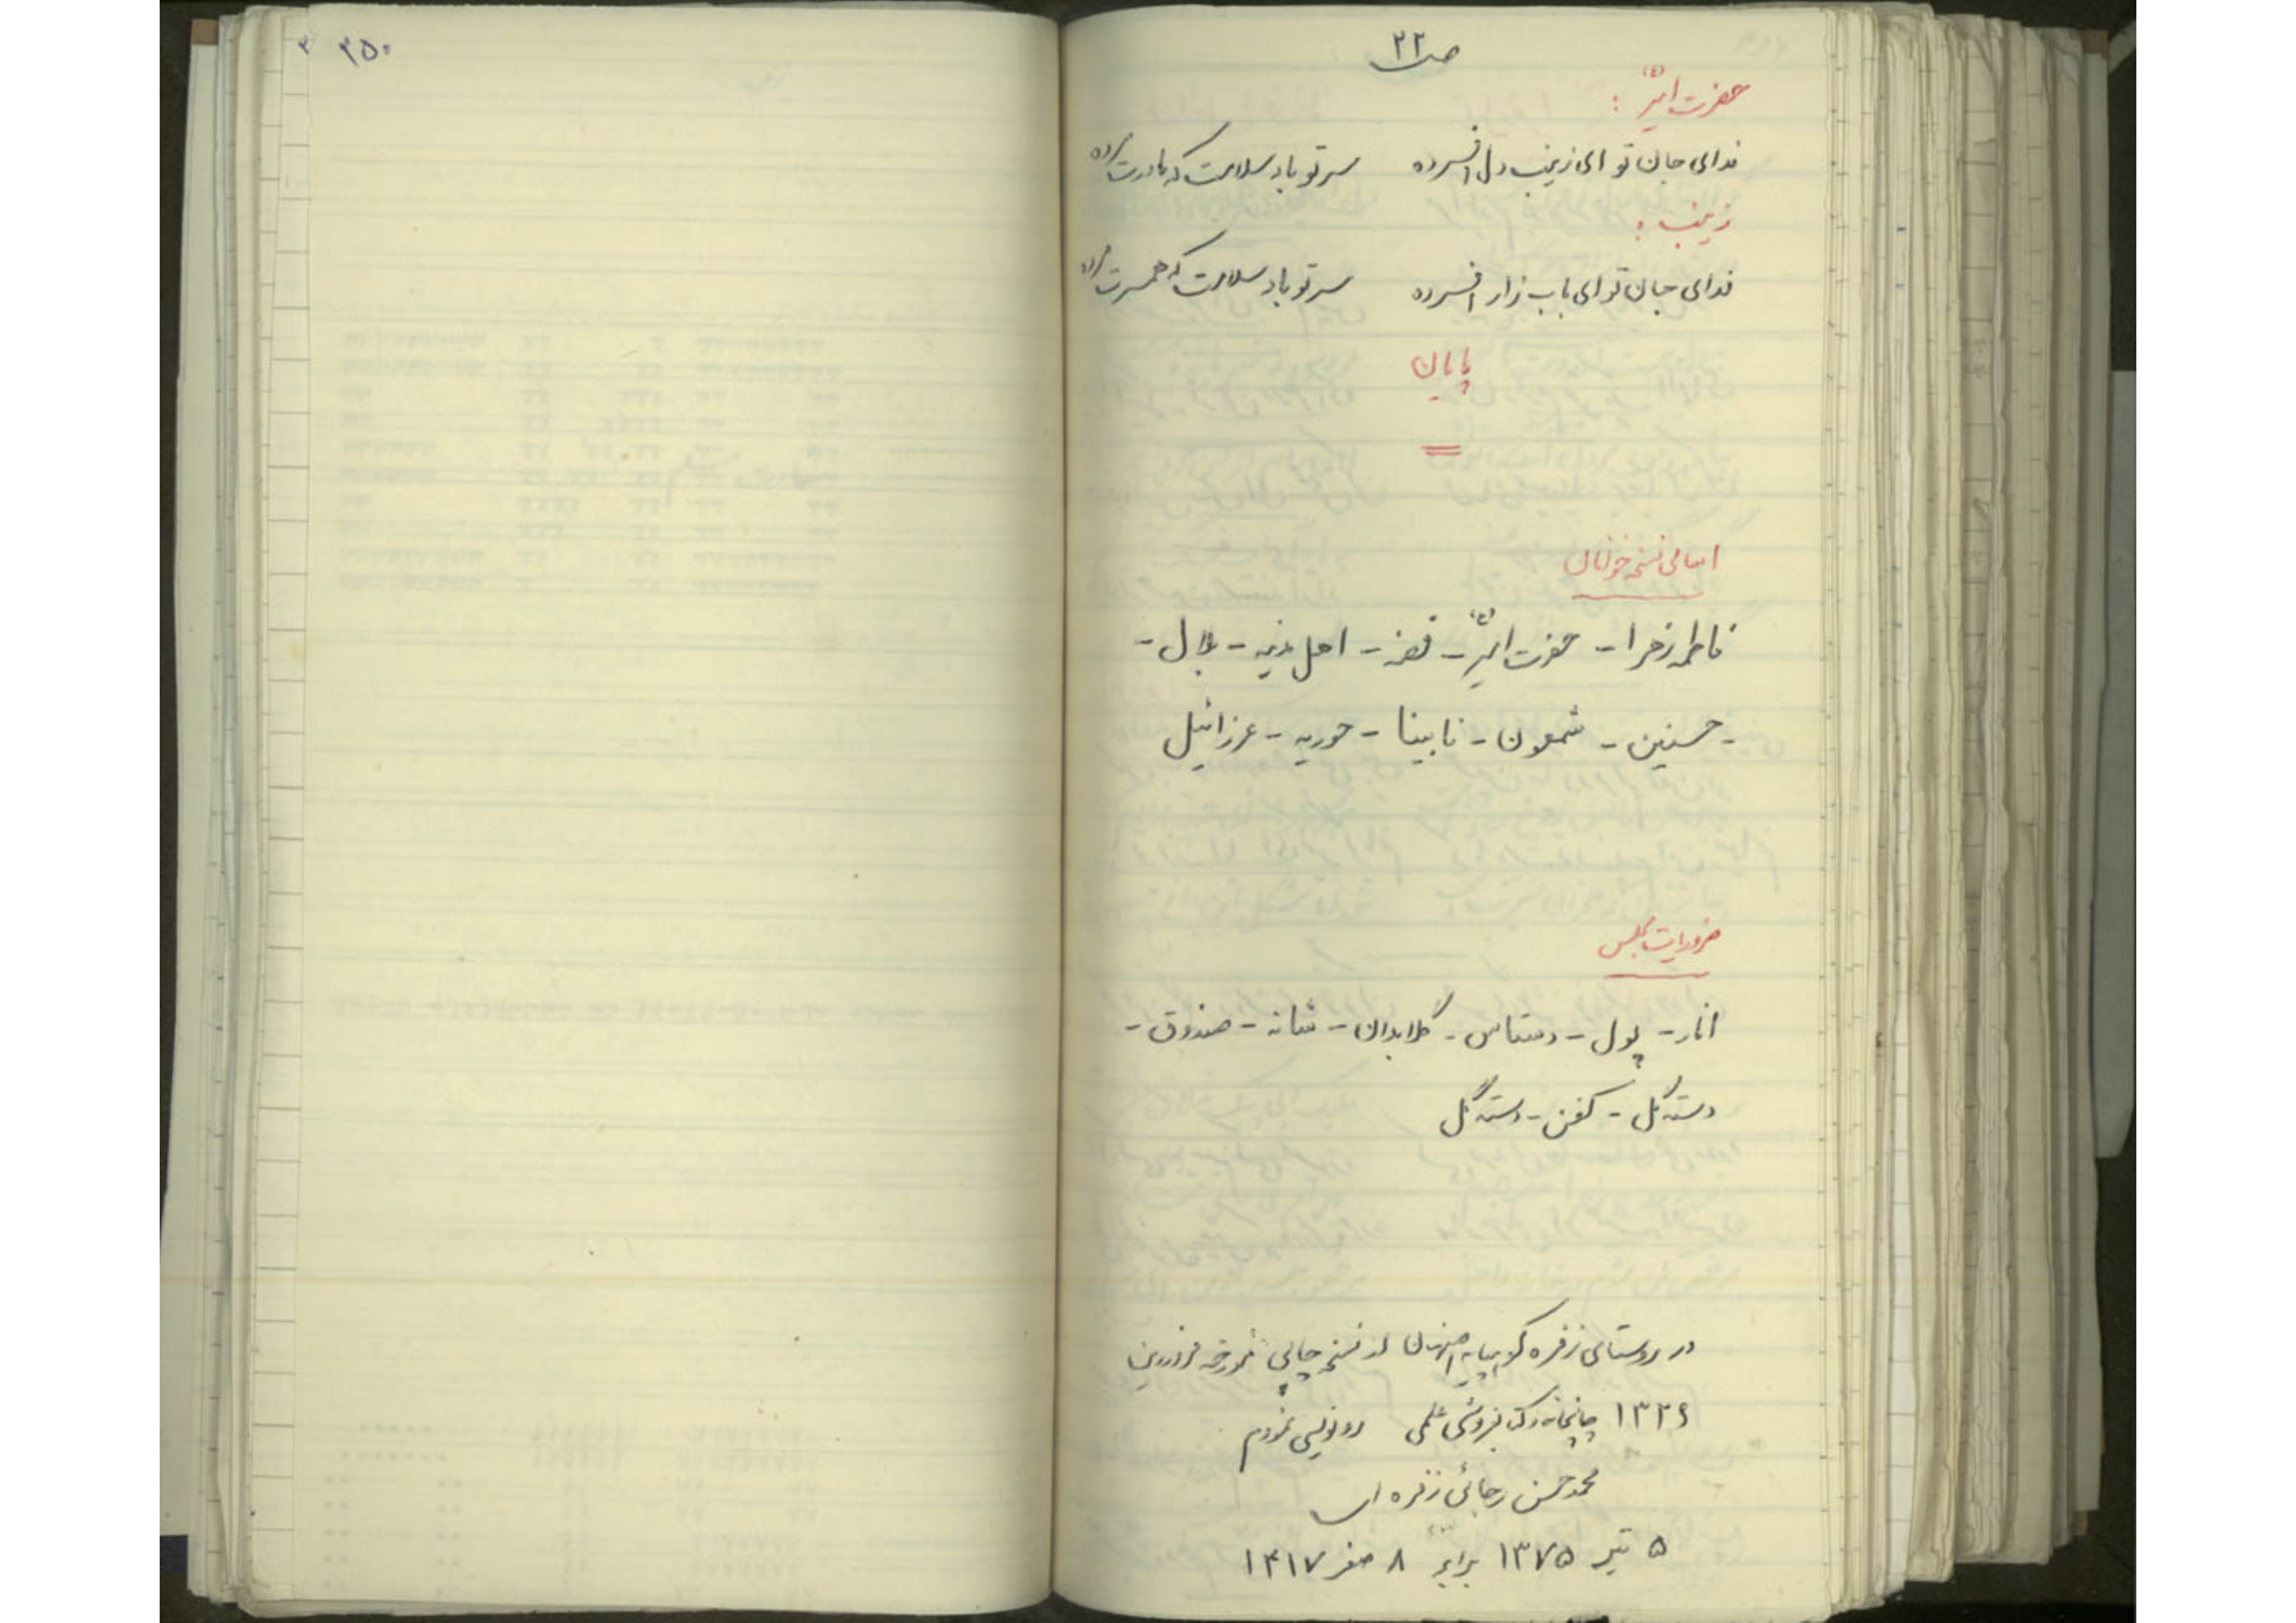 ص ۲۲
حضرت امیر (ع) :
فدای جان تو ای زینب دل افسرده    سر تو باد سلامت که مادرت مرده
زینب :
فدای جان تو ای باب زار افسرده    سر تو باد سلامت که همسرت مرده
پایان
اسامی نسخه خوانان
فاطمه زهرا - حضرت امیر (ع) - فضه - اهل مدینه - بلال -
- حسنین - شمعون - نابینا - حوریه - عزرائیل
ضروریات مجلس
انار - پول - دستاس - گلابدان - شانه - صندوق -
دسته گل - کفن - دسته گل
در روستای زفره کوهپایه اصفهان از نسخه چاپی مورخه فروردین
۱۳۲۶ چاپخانه و کتابفروشی علمی رونویسی نمودم
محمد حسن رجائی زفره ای
۵ تیر ۱۳۷۵ برابر ۸ صفر ۱۴۱۷
۳۵۰